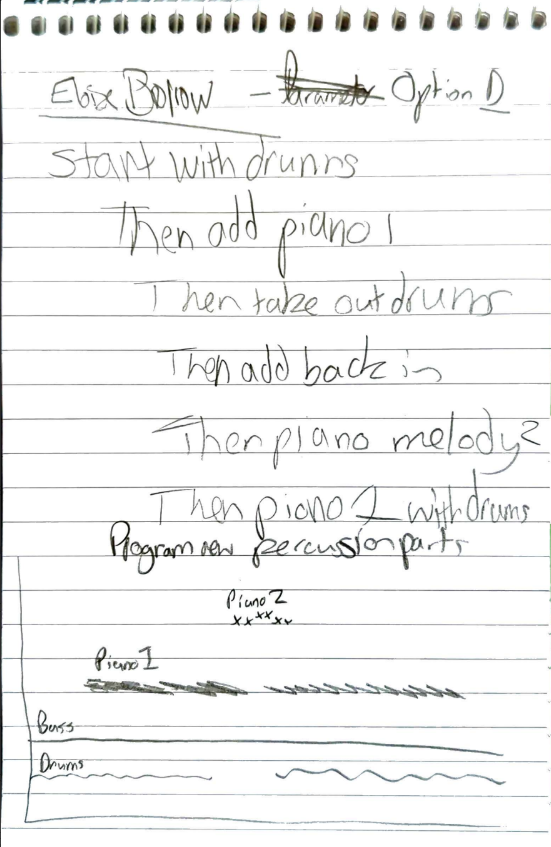 - Option D
Start with drums
Then add piano 1
Then take out drums
Then add back in
Then piano melody 2
Then piano 1 with drums
Program new percussion parts
Piano 2
xxxxxx
Piano 1
Bass
Drums